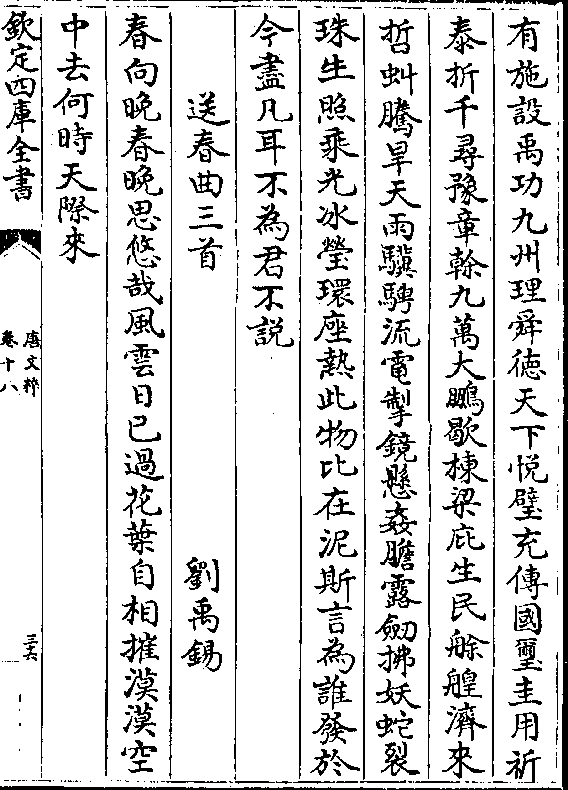 有施設禹功九州理舜徳天下悦璧充傳國璽圭用祈
泰折千尋豫章榦九萬大鵬歇棟梁庇生民艅艎濟來
哲虯騰旱天雨驥騁流電掣鏡懸姦膽露劒拂妖蛇裂
珠生照乘光冰瑩環座熱此物比在泥斯言為誰發於
今盡凡耳不為君不説
送春曲三首 劉禹錫
春向晚春晚思悠哉風雲日已過花葉自相摧漠漠空
中去何時天際來
欽定四庫全書
唐文粹
卷十八
三六